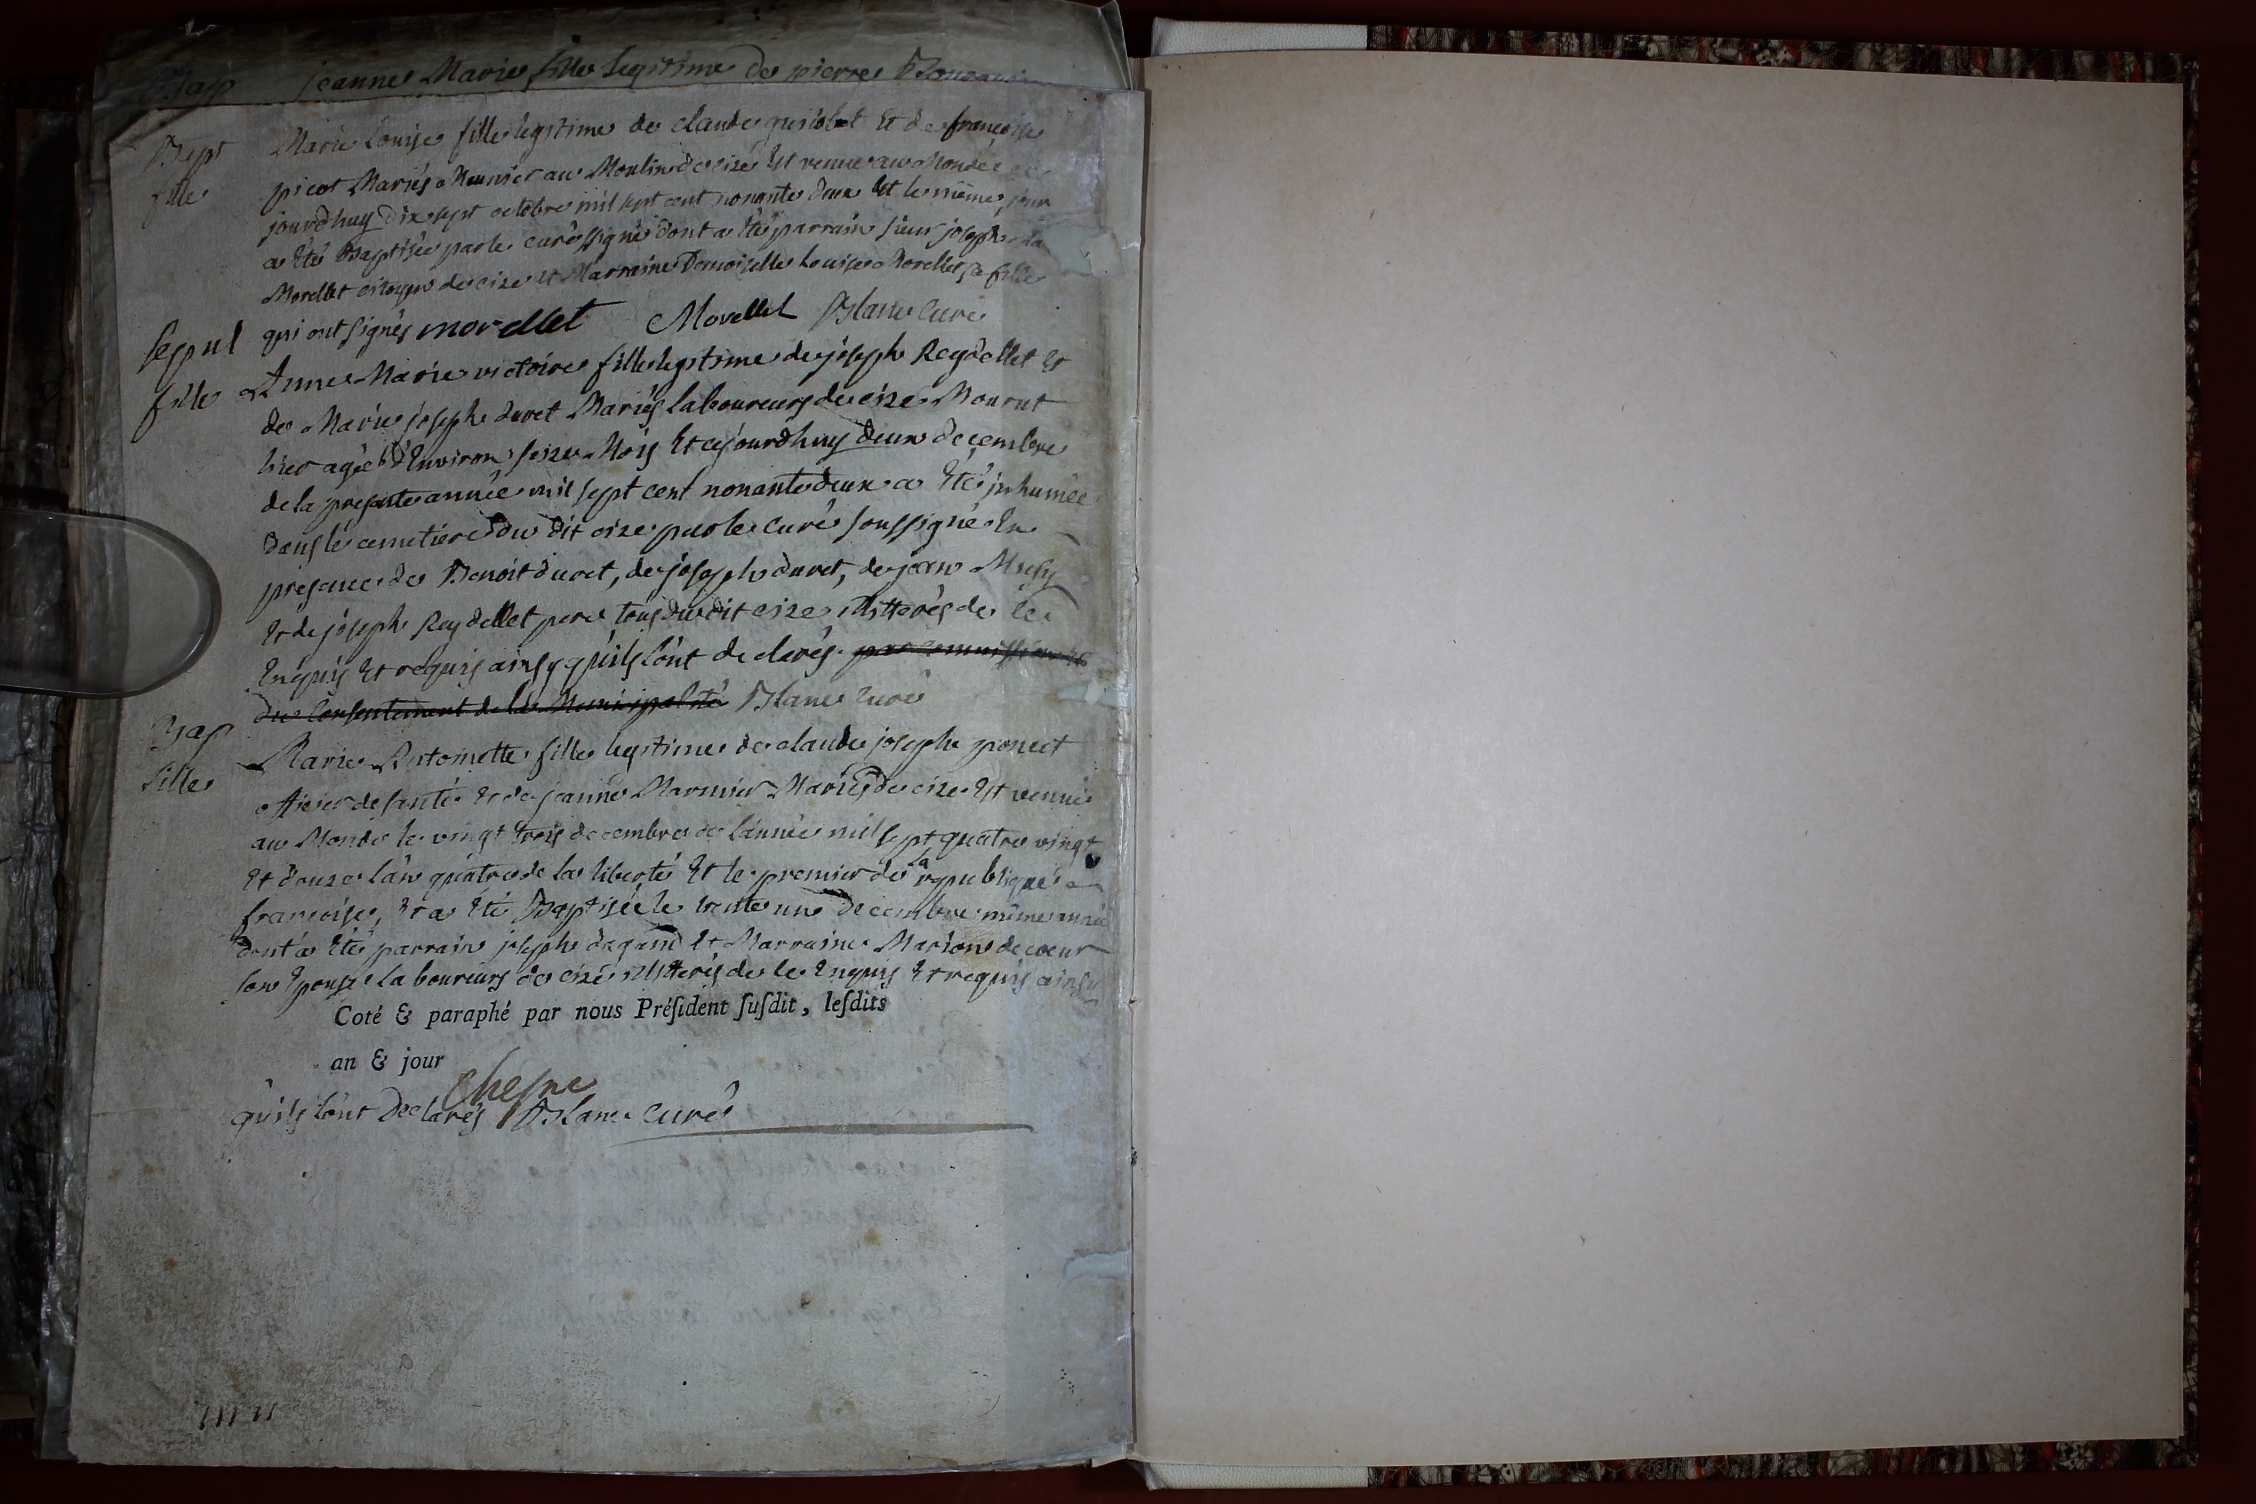 Bap Jeanne Marie fille legitime de pierre
Bapt Marie Louise fille legitime de claude guillobet Et de françoise
fille picot Mariés Meunier au Moulin de cize Est venue au Monde ce
jourdhuy dix sept octobre mil sept cent nonante deux Et le même jour
a Eté Baptisée par le curé ssigné dont a Eté parrain sieur joseph
Morellet citoyen de cize et Marraine Demoiselle Louise Morellet sa fille
qui ont signés morellet Morellet Blanc Curé
sepul
fille Anne Marie victoire fille legitime de joseph Reydellet Et
de Marie joseph duret Mariés laboureurs de cize Mourut
hier agée d'Environ seize Mois Et cejourdhuy deux decembre
de la presente année mil sept cent nonante deux a Eté inhumée
dans le cemetiere du dit cize par le curé soussigné En
presence de Benoit duret, de joseph duret, de jean
Et de joseph Reydellet pere tous du dit cize illitterés de ce
Enquis Et requis ainsy qu'ils l'ont declarés par
du Consentement de la Municipalité Blanc Curé
Bap Marie Antoinette fille legitime de claude joseph poncet
fille officier de santé Et de jeanne Marmier Mariés de cize Est venue
au Monde le vingt trois decembre de l'année mil sept quatre vingt
Et douze l'an quatre de la liberté Et le premier de la republique
francoise, Et a Eté Baptisée le trente une decembre même année
dont a Eté parrain joseph dagand Et Marraine Marion decoeur
son Epouse laboureurs de cize illitterés de ce Enquis Et requis ainsy
Coté & paraphé par nous Préſident ſuſdit, leſdits
an & jour
Chesne
qu'ils l'ont declarés Blanc Curé